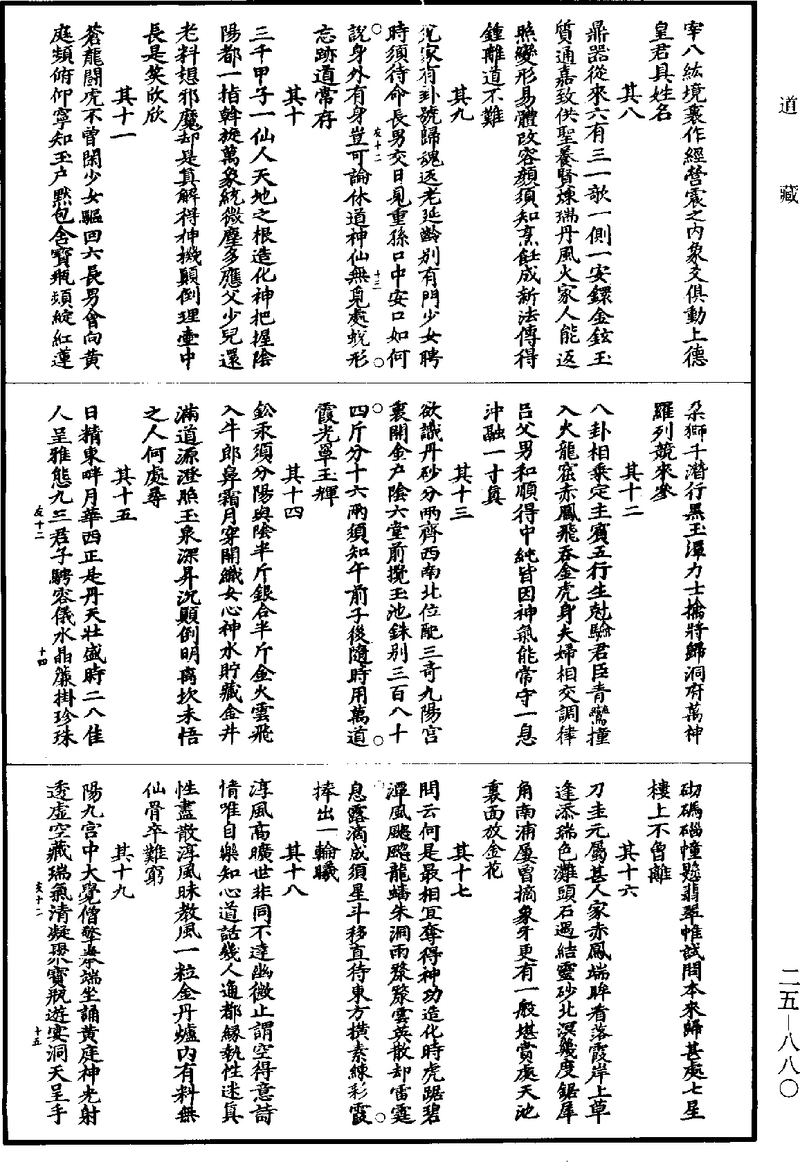 道藏
宰八紘境裏作經營震之內象文俱動上德
皇君具姓名
其八
鼎器從來六有三一敧一側一安鐶金鉉玉
質通嘉致供聖養賢煉瑞丹風火家人能返
照變形易體改容顏須知烹飪成新法傳得
鍾離道不難
其九
兌家有卦號歸魂返老延齡別有門少女聘
時須待命長男交日見重孫口中安口如何
說身外有身豈可論休道神仙無覓處蛻形
忘跡道常存
其十
三千甲子一仙人天地之根造化神把握陰
陽都一指斡旋萬象統微塵多應父少兒還
老料想邪魔却是真解得神機顛倒理壷中
長是笑欣欣
其十一
蒼龍鬪虎不曾閑少女驅回六長男會向黃
庭頻俯仰寧知玉户黙包含寶瓶頭綻紅蓮
左十二
十三
朶獅千潛行黑玉潭力士擒將歸洞府萬神
羅列競來參
其十二
八卦相乘定主賓五行生尅驗君臣青鸞撞
入火龍窟赤鳳飛吞金虎身夫婦相交調律
呂父男和順得中純皆因神氣能常守一息
沖融一寸真
其十三
欲識丹砂分兩齊西南北位配三竒九陽宮
裏開金户陰六堂前攪玉池銖别三百八十
四斤分十六兩須知午前子後隨時用萬道
霞光罩玉輝
其十四
鈆汞須分陽與陰半斤銀合半斤金火雲飛
入牛郎鼻霜月穿開織女心神水貯藏金井
滿道源澄照玉泉深昇沉顛倒明离坎未悟
之人何處尋
其十五
日精東畔月華西正是丹天壯盛時二八佳
人呈雅態九三君子騁容儀水晶簾掛珍珠
左十二
十四
砌碼碯幢懸翡翠帷試問本來歸甚處七星
樓上不曾離
其十六
刀圭元屬甚人家赤鳳端眸看落霞岸上草
逢添瑞色灘頭石遇結靈砂北溟幾度鋸犀
角南浦屢曾摘象牙更有一般堪賞處天池
裏面放金花
其十七
問云何是最相宜奪得神功造化時虎踞碧
潭風颼颼龍蟠朱洞雨䙰䙰雲英散却雷霆
息露滴成須星斗移直待東方橫素練彩霞
捧出一輪曦
其十八
淳風高曠世非同不達幽微止謂空得意詩
情唯自樂知心道話幾人通都緣執性迷真
性盡散淳風昧教風一粒金丹爐內有料無
仙骨卒難窮
其十九
陽九宮中大覺僧擎拳端坐誦黃庭神光射
透虛空藏瑞氣清凝聚寶瓶遊宴洞天呈手
左十二
十五
二五—八八〇